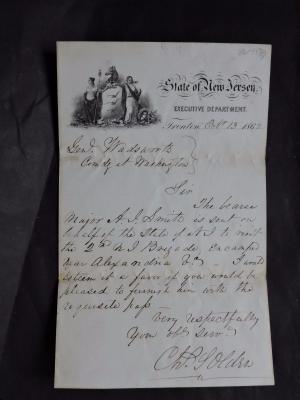 State of New Jersey,
EXECUTIVE DEPARTMENT.
Trenton Oct. 13 1862
Genl. Wadsworth
Comdg at Washington
Sir
The bearer
Major A. J. Smith is sent on
behalf of the State of N J to visit
the 2nd N J Brigade, encamped
near Alexandria Va. I would
esteem it a favor if you would be
pleased to furnish him with the
requisite pass
Very respectfully
Your obt Servt
Chs. S. Olden